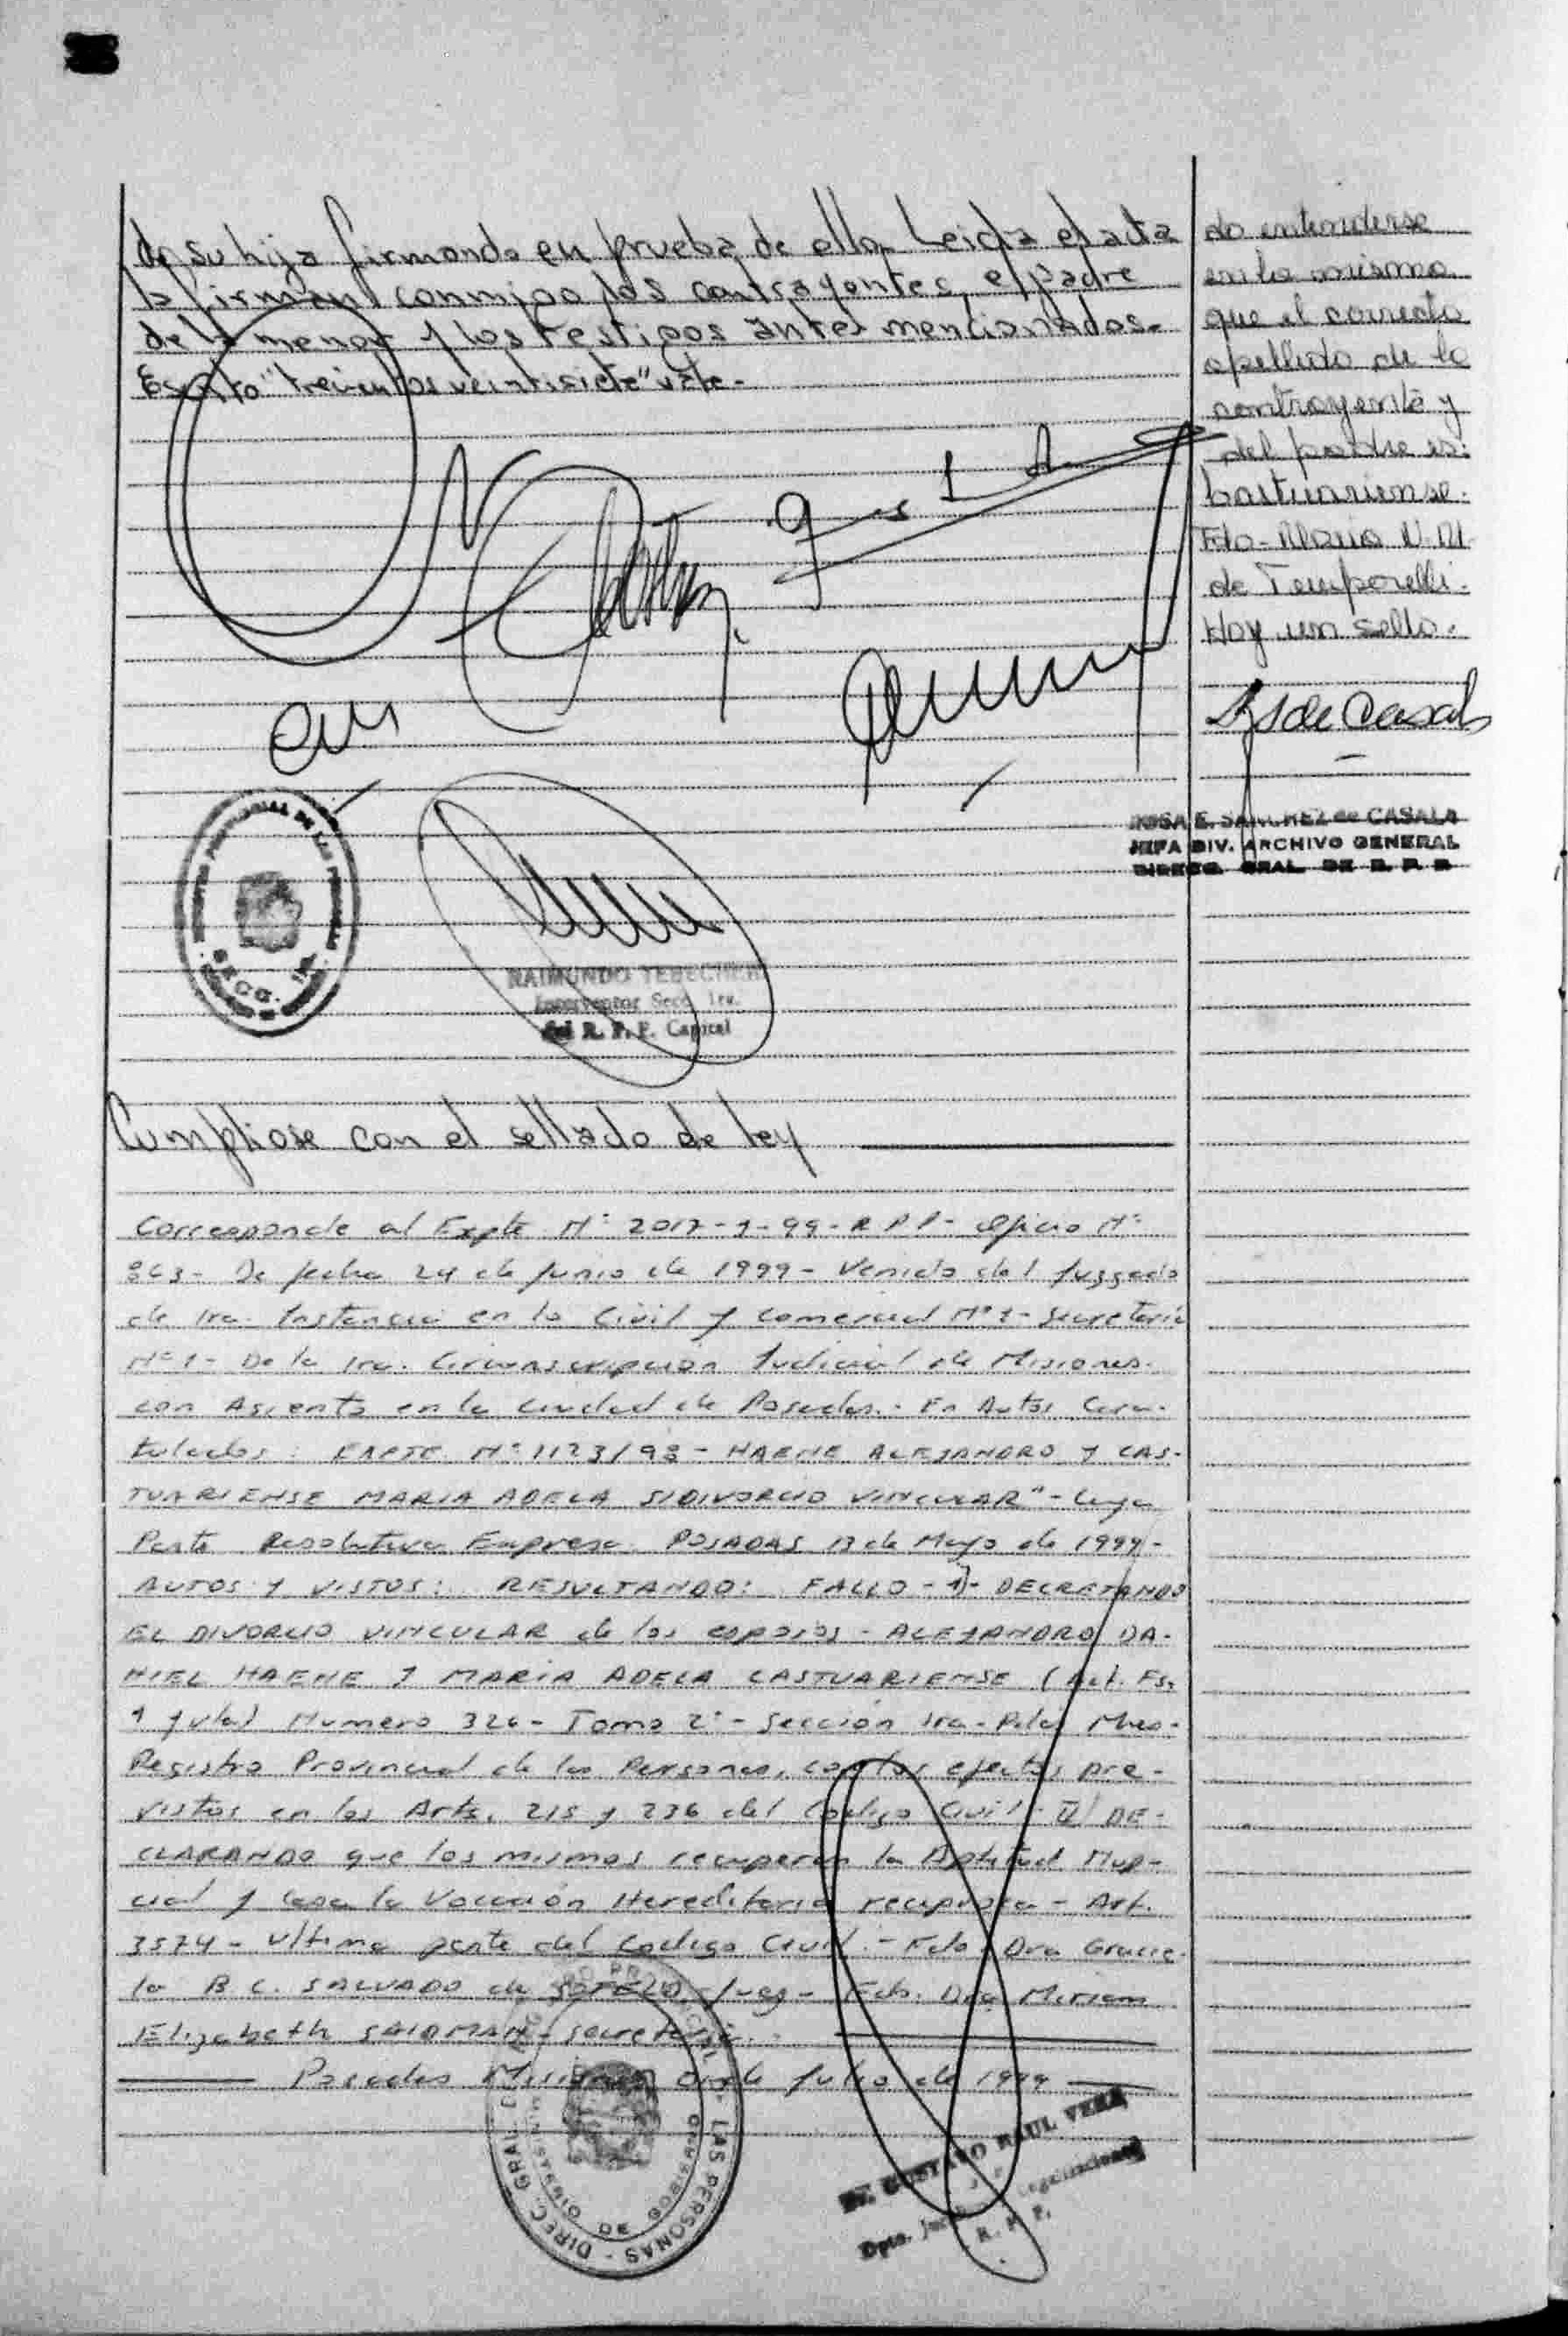 de su hija firmando en prueba de ello. Leida el acta
la firman conmigo los contrayentes, el padre
de la menor y los testigos antes mencionados.-
Escrito "trecientos veintisiete" vale.-
do entenderse
en la misma
que el correcto
apellido de la
contrayente y
del padre es:
Castuariense.
Fdo- Maria N. M.
de Temporelli.
Hay un sello.
RAIMUNDO TEBECHERI
Interventor Secc. 1ra.
del R. P. P. Capital
ROSA E. SANCHEZ de CASALA
JEFA DIV. ARCHIVO GENERAL
DIRECC. GRAL. DE R. P. P.
SECC. 1ra.
Cumpliose con el sellado de ley
Corresponde al Expte Nº 2017-1-99-R P P- Oficio Nº
863- De fecha 24 de Junio de 1999- Venido del Juzgado
de 1ra. Instancia en lo Civil y Comercial Nº 1- Secretaria
Nº 1- De la 1ra. Circunscripción Judicial de Misiones.
con Asiento en la Ciudad de Posadas.- En Autos Cara-
tulados: EXPTE Nº 1123/98- HAENE ALEJANDRO Y CAS-
TUARIENSE MARIA ADELA S/DIVORCIO VINCULAR"- Cuya
Parte Resolutiva Expresa: POSADAS 13 de Mayo de 1999-
AUTOS Y VISTOS: RESULTANDO: FALLO- 1)- DECRETANDO
EL DIVORCIO VINCULAR de los esposos- ALEJANDRO DA-
NIEL HAENE Y MARIA ADELA CASTUARIENSE (Act. Fs.
1 y vta) Numero 326- Tomo 2º- Sección 1ra-
Registro Provincial de las Personas, con los efectos pre-
vistos en los Arts. 215 y 236 del Codigo Civil- II) DE-
CLARANDO que los mismos recuperan la Aptitud Nup-
cial y cesa la Vocación Hereditaria reciproca- Art.
3574- Ultima parte del Codigo Civil.- Fdo Dra Gracie-
la B C. SALVADO de SOTELO- Juez- Fdo. Dra Miriam
Elizabeth SAIDMAN- Secretaria.-
Posadas Misiones de Julio de 1999
DIREC. GRAL. LAS PERSONAS
MINISTERIO DE GOBIERNO
GUSTAVO RAUL VERA